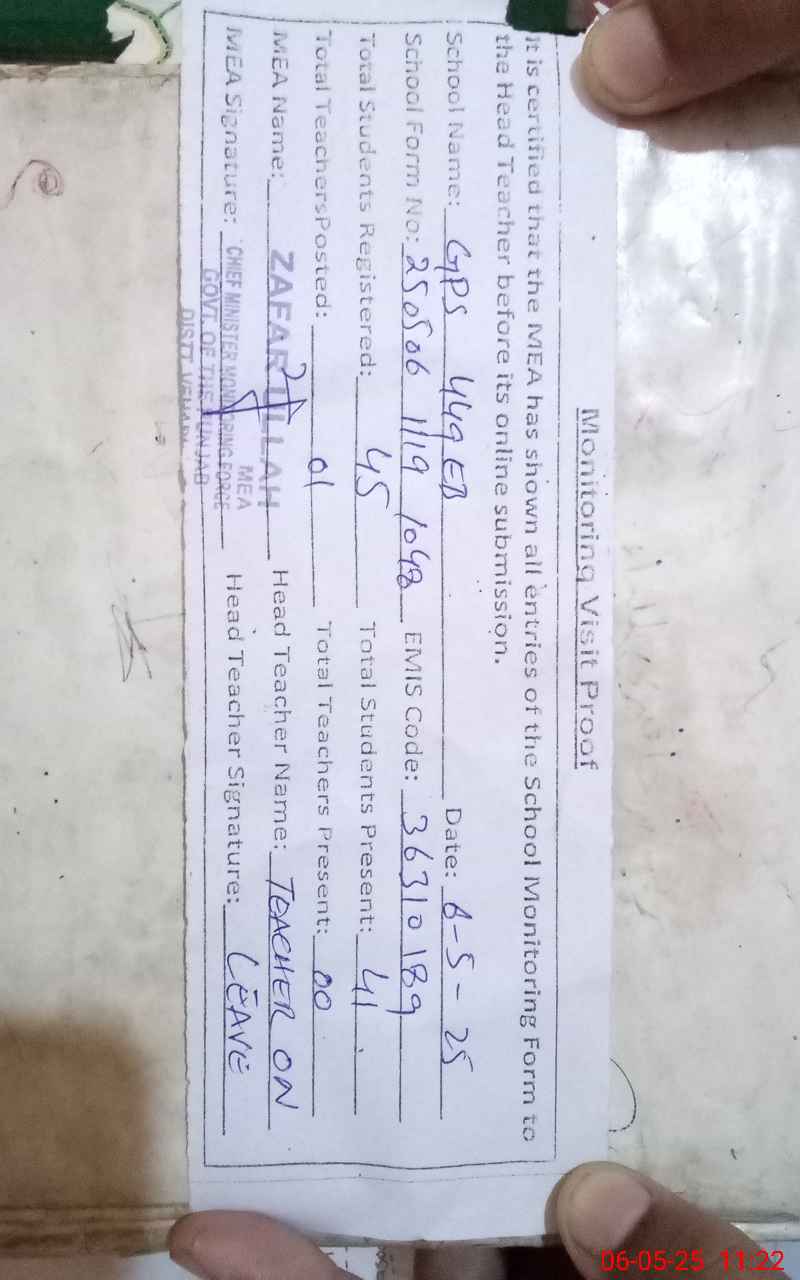 Monitoring Visit Proof
It is certified that the MEA has shown all entries of the School Monitoring Form to
the Head Teacher before its online submission.
School Name: GPS 449 EB Date: 6-5-25
School Form No: 250506 1119 1048 EMIS Code: 36310189
Total Students Registered: 45 Total Students Present: 41
Total TeachersPosted: 01 Total Teachers Present: 00
MEA Name: ZAFAR ULLAH Head Teacher Name: TEACHER ON
MEA Signature: Head Teacher Signature: LEAVE
MEA
CHIEF MINISTER MONITORING FORCE
GOVT. OF THE PUNJAB
DISTT VEHARI
06-05-25 11:22